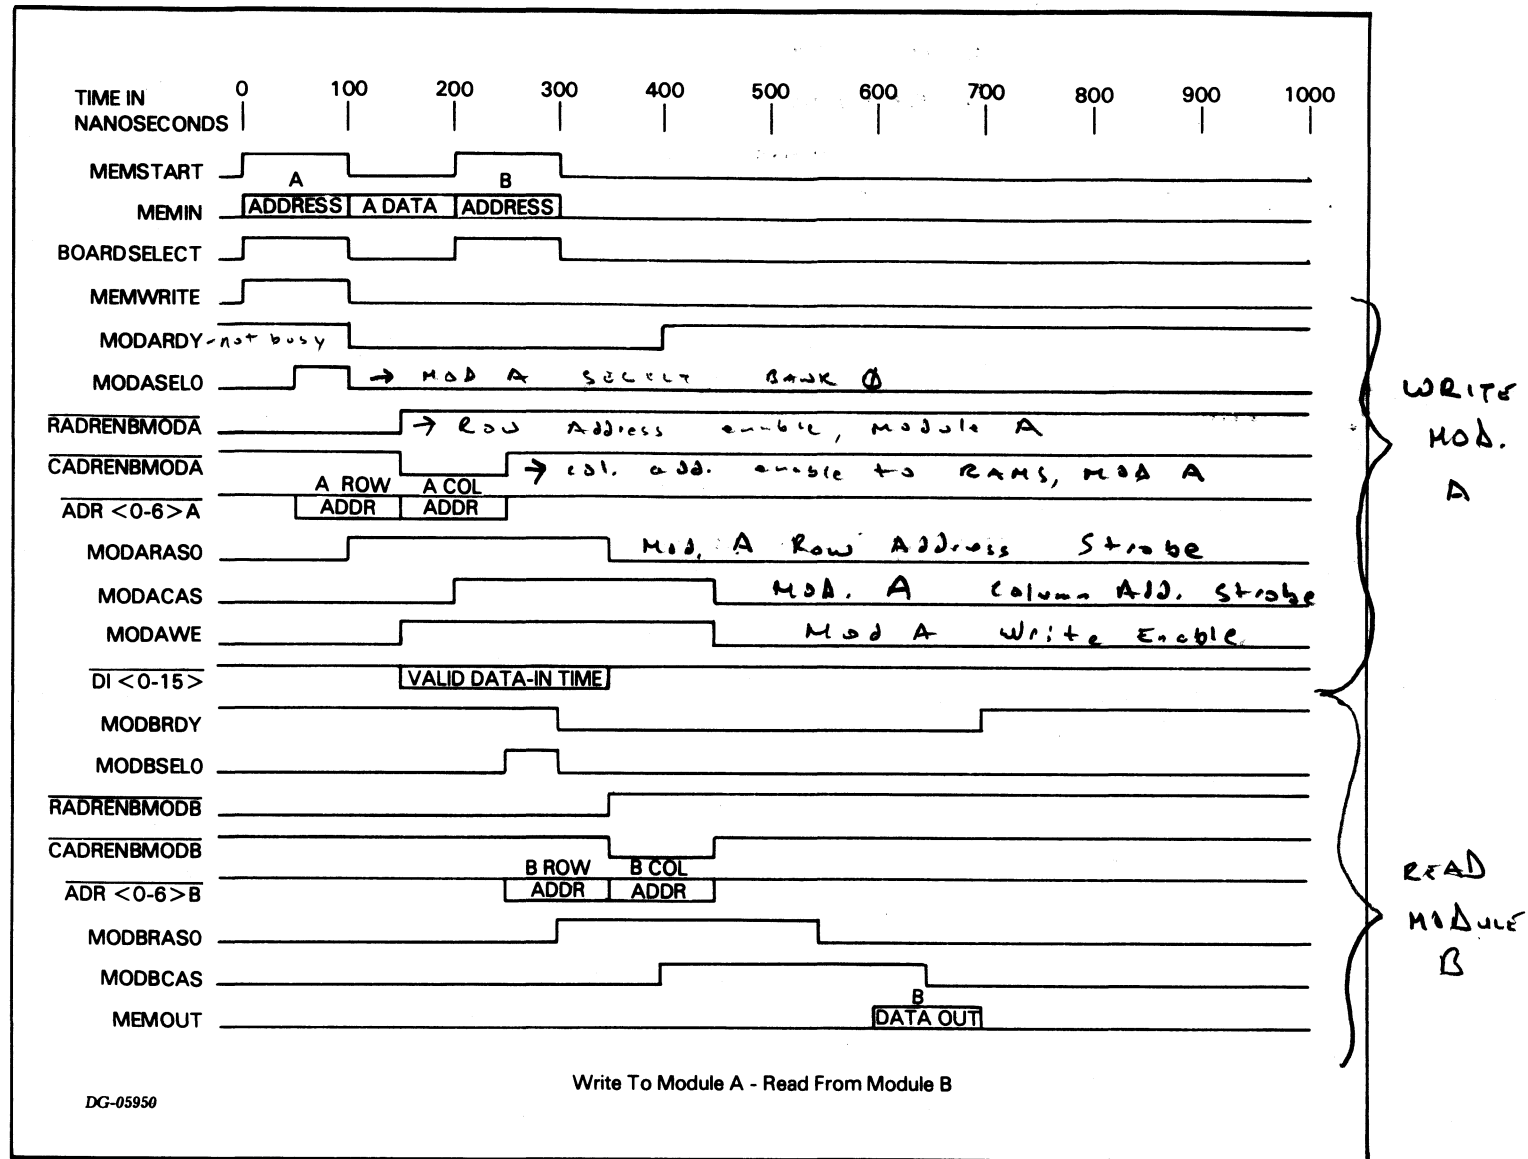 0 100 200 300 400 500 600 700 800 900 1000
TIME IN
NANOSECONDS
MEMSTART
A B
MEMIN ADDRESS A DATA ADDRESS
BOARDSELECT
MEMWRITE
MODARDY - not busy
MODASEL0 → MOD A SELECT BANK 0
RADRENBMODA → Row Address enable, Module A
CADRENBMODA → col. add. enable to RAMS, MOD A
A ROW A COL
ADR <0-6>A ADDR ADDR
MODARAS0 Mod. A Row Address Strobe
MODACAS MOD. A Column Add. Strobe
MODAWE Mod A Write Enable
DI <0-15> VALID DATA-IN TIME
WRITE
MOD.
A
MODBRDY
MODBSEL0
RADRENBMODB
CADRENBMODB
B ROW B COL
ADR <0-6>B ADDR ADDR
MODBRAS0
MODBCAS
B
MEMOUT DATA OUT
READ
MODULE
B
Write To Module A - Read From Module B
DG-05950